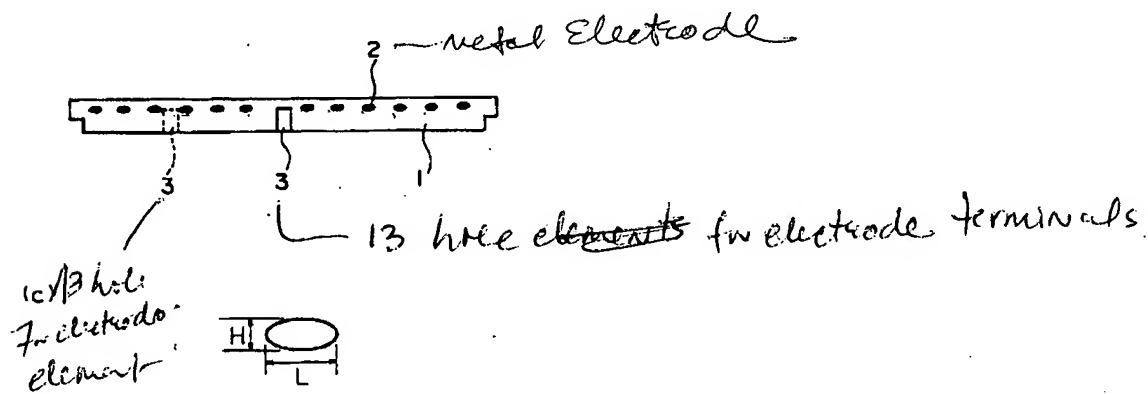 2 — Metal Electrode
3 3 1
13 hole elements for electrode terminals
hole
For electrode
element
H
L